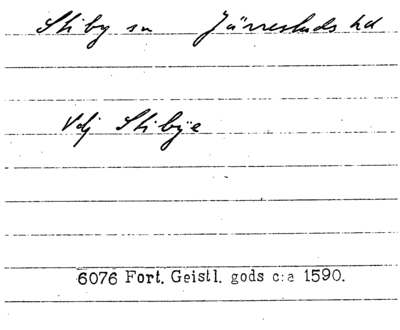 Stiby sn Järrestads hd
Vdj Stibÿe
6076 Fort. Geistl. gods c:a 1590.